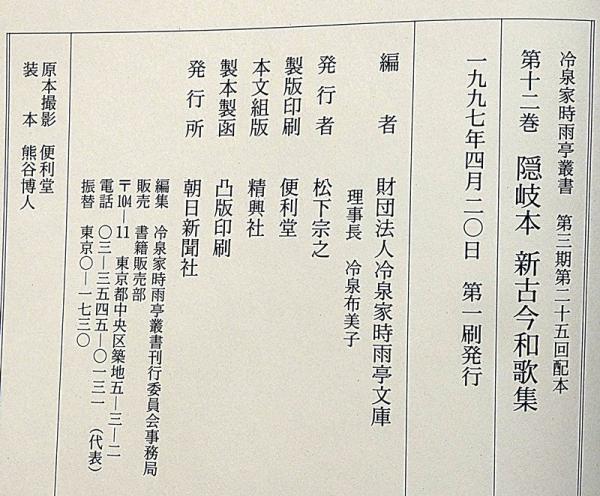 冷泉家時雨亭叢書　第三期第二十五回配本
第十二巻　隠岐本　新古今和歌集
一九九七年四月二〇日　第一刷発行
編者　財団法人冷泉家時雨亭文庫
理事長　冷泉布美子
発行者　松下宗之
製版印刷　便利堂
本文組版　精興社
製本製函　凸版印刷
発行所　朝日新聞社
編集　冷泉家時雨亭叢書刊行委員会事務局
販売　書籍販売部
〒104―11　東京都中央区築地五―三―二
電話　〇三―三五四五―〇一三一（代表）
振替　東京〇―一七三〇
原本撮影　便利堂
装本　熊谷博人